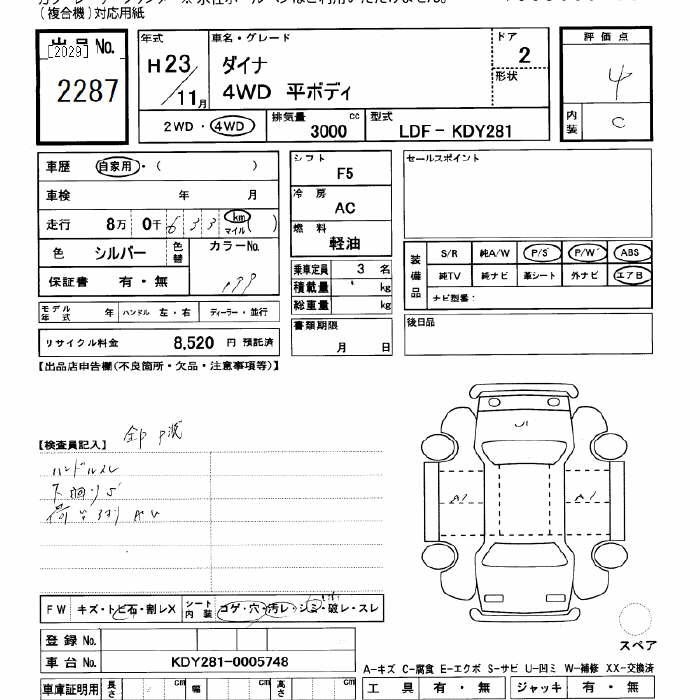 (複合機)対応用紙
出品 No. [2029]
2287
年式 車名・グレード ドア 評価点
H23/11月 ダイナ 2 4
4WD 平ボディ 形状
2WD・4WD 排気量 3000 cc 型式 LDF-KDY281 内装 C
車歴 自家用・( )
車検 年 月
走行 8万 0千 633 km マイル ( )
色 シルバー 色替 カラーNo.
保証書 有・無 1PP
モデル年式 年 ハンドル 左・右 ディーラー・並行
リサイクル料金 8,520 円 預託済
シフト F5
冷房 AC
燃料 軽油
乗車定員 3 名
積載量 kg
総重量 kg
書類期限
月 日
セールスポイント
装備品 S/R 純A/W P/S P/W ABS
純TV 純ナビ 革シート 外ナビ エアB
ナビ型番:
後日品
【出品店申告欄(不良箇所・欠品・注意事項等)】
【検査員記入】
ハンドルスレ
下回りS
A1 A1
FW キズ・トビ石・割レX シート内装 コゲ・穴・汚レ・シミ・破レ・スレ
登録 No.
車台 No. KDY281-0005748
スペア
A-キズ C-腐食 E-エクボ S-サビ U-凹ミ W-補修 XX-交換済
車庫証明用 長さ cm 幅 cm 高さ cm 工具 有・無 ジャッキ 有・無